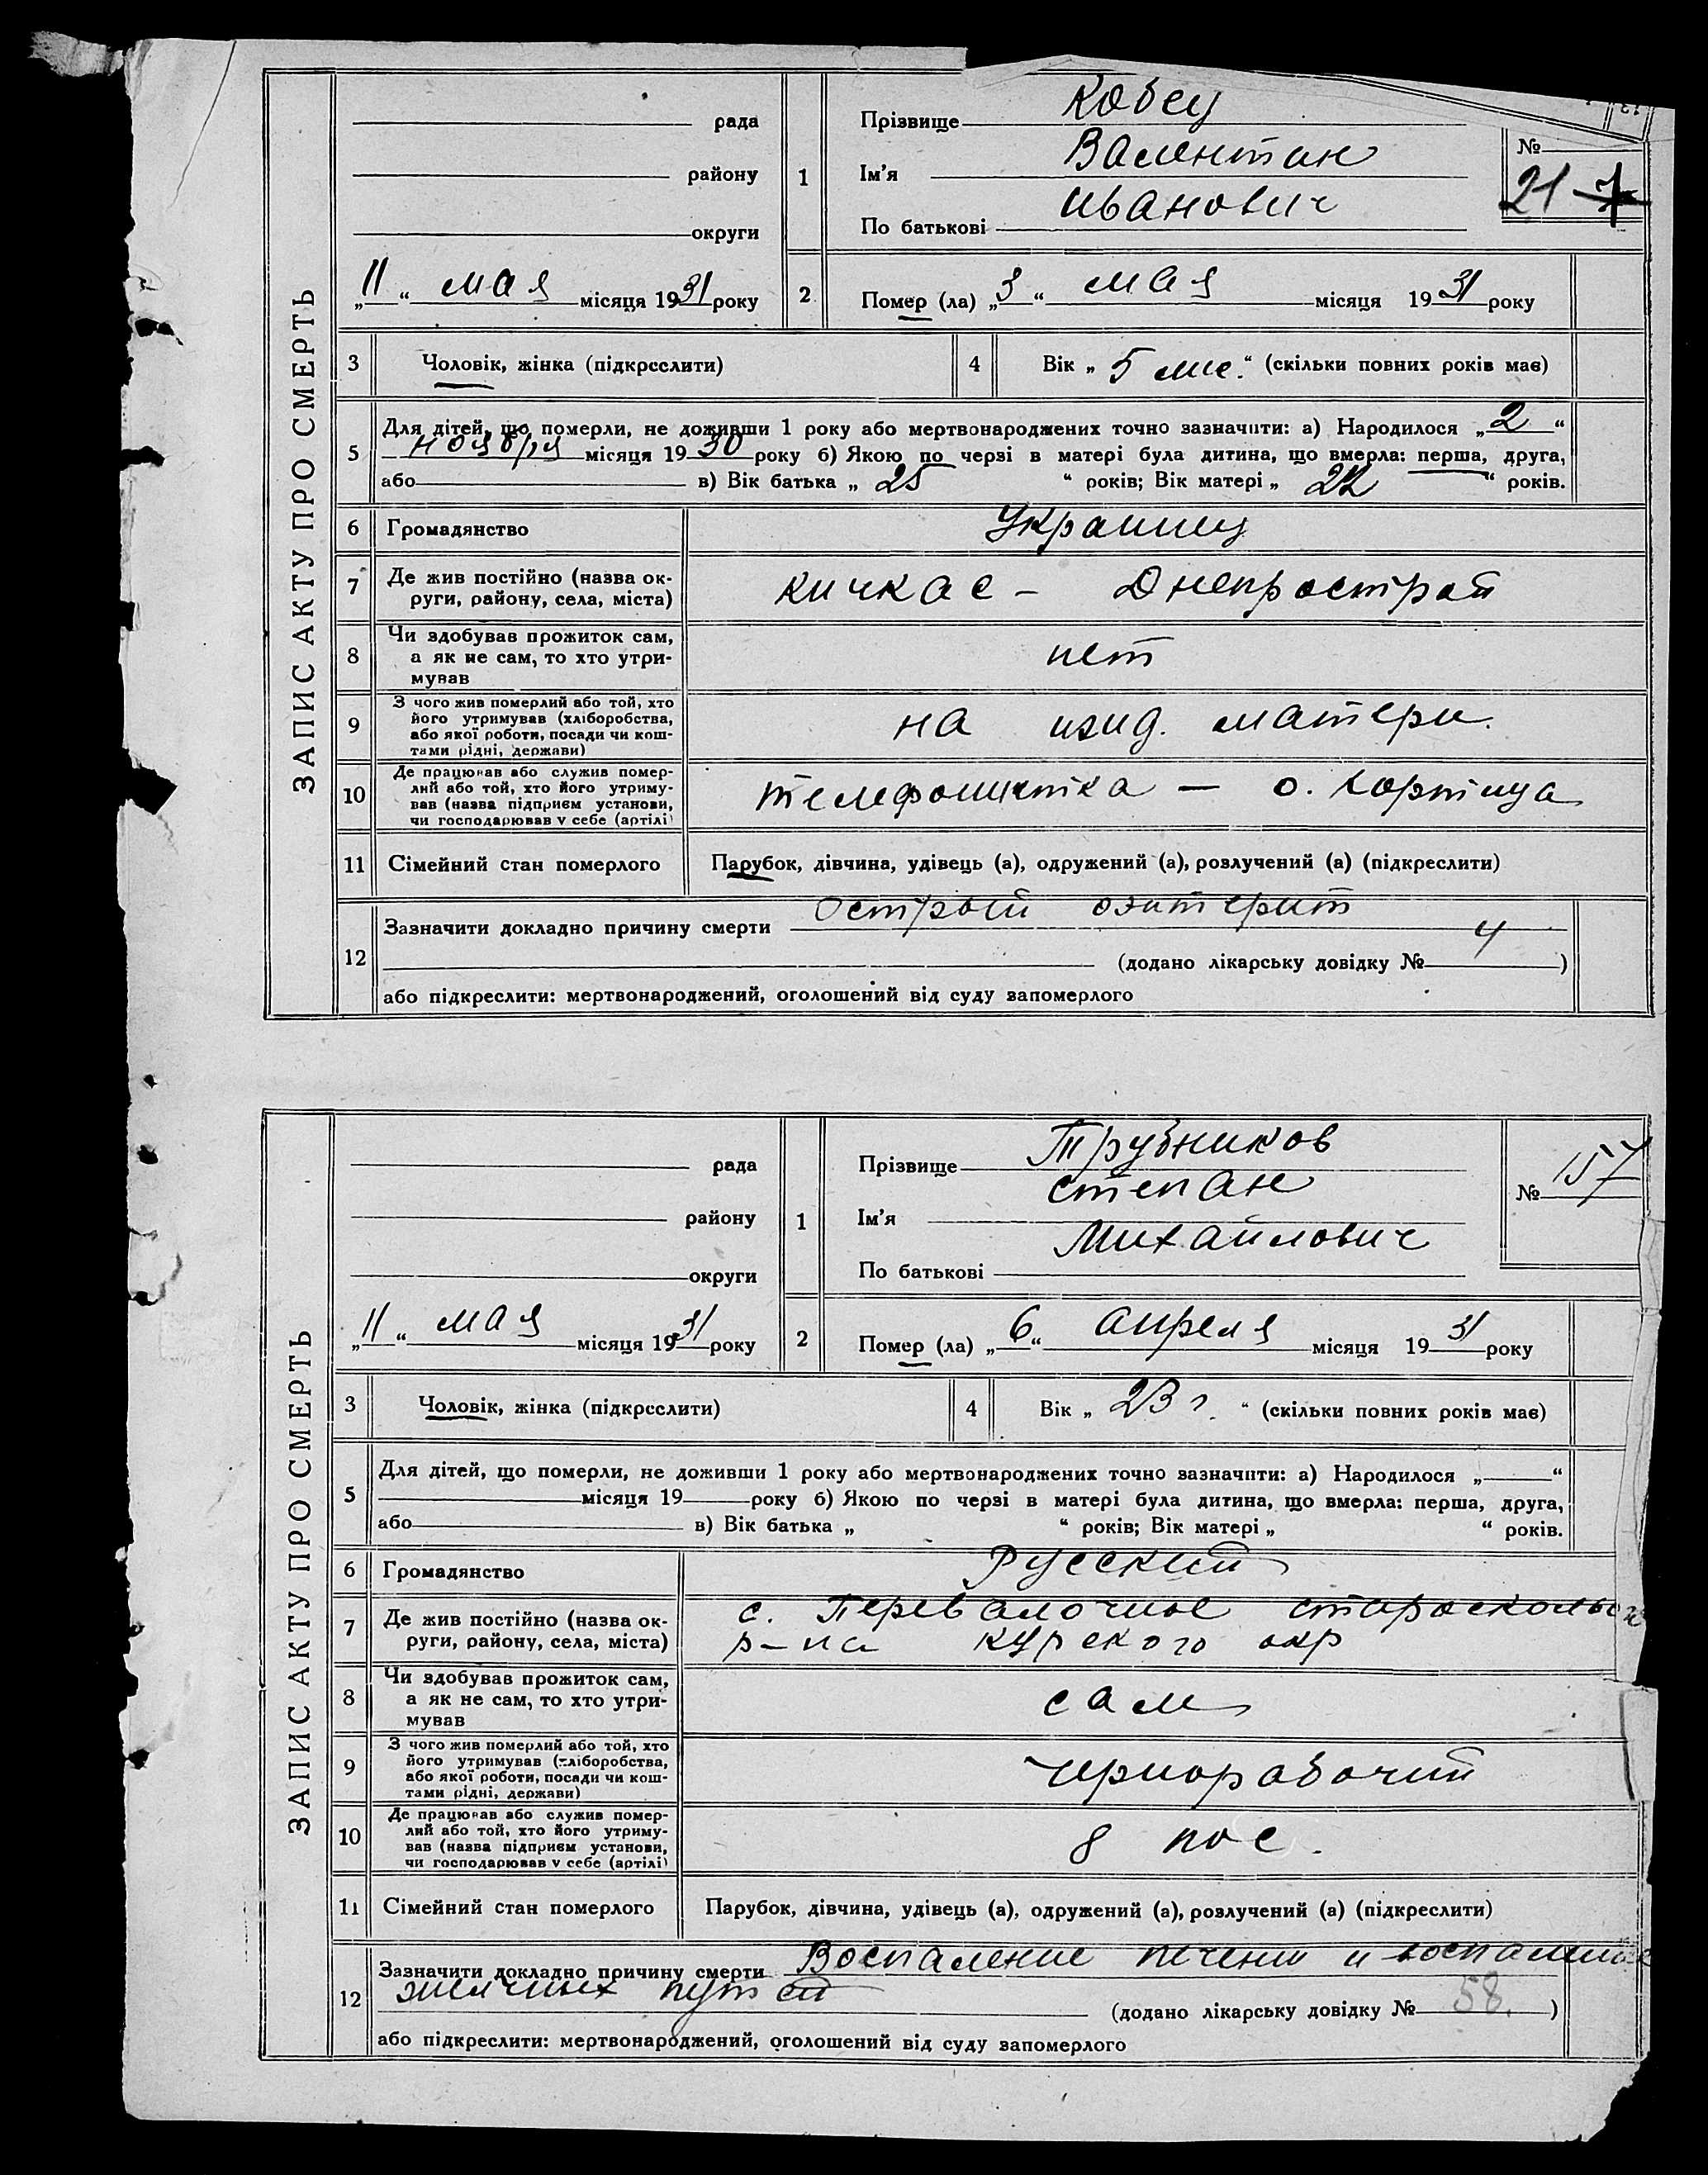 ЗАПИС АКТУ ПРО СМЕРТЬ
рада
району
округи
„11“ мая місяця 1931 року
1
Прізвище Кобец
Ім'я Валентин
По батькові Иванович
№
21
2
Помер (ла) „3“ мая місяця 1931 року
3 Чоловік, жінка (підкреслити)
4 Вік „5 мис.“ (скільки повних років має)
5
Для дітей, що померли, не доживши 1 року або мертвонароджених точно зазначити: а) Народилося „2“
ноября місяця 1930 року б) Якою по черзі в матері була дитина, що вмерла: перша, друга,
або в) Вік батька „25“ років; Вік матері „22“ років.
6 Громадянство Украинец
7 Де жив постійно (назва ок-
руги, району, села, міста)
Кичкас – Днепрострой
8 Чи здобував прожиток сам,
а як не сам, то хто утри-
мував
нет
9 З чого жив померлий або той, хто
його утримував (хліборобства,
або якої роботи, посади чи кош-
тами рідні, держави)
на ижд. матери.
10 Де працював або служив помер-
лий або той, хто його утриму-
вав (назва підприєм установи,
чи господарював у себе (артілі)
телефонистка – о. Хортица
11 Сімейний стан померлого Парубок, дівчина, удівець (а), одружений (а), розлучений (а) (підкреслити)
12
Зазначити докладно причину смерти Острый энтерит
(додано лікарську довідку № 4)
або підкреслити: мертвонароджений, оголошений від суду запомерлого
ЗАПИС АКТУ ПРО СМЕРТЬ
рада
району
округи
„11“ мая місяця 1931 року
1
Прізвище Трубников
Ім'я Степан
По батькові Михайлович
№ 157
2
Помер (ла) „6“ апреля місяця 1931 року
3 Чоловік, жінка (підкреслити)
4 Вік „23 г.“ (скільки повних років має)
5
Для дітей, що померли, не доживши 1 року або мертвонароджених точно зазначити: а) Народилося „ “
місяця 19 року б) Якою по черзі в матері була дитина, що вмерла: перша, друга,
або в) Вік батька „ “ років; Вік матері „ “ років.
6 Громадянство Русский
7 Де жив постійно (назва ок-
руги, району, села, міста)
с. Перевалочное Старооскольск
р-на Курского окр
8 Чи здобував прожиток сам,
а як не сам, то хто утри-
мував
сам
9 З чого жив померлий або той, хто
його утримував (хліборобства,
або якої роботи, посади чи кош-
тами рідні, держави)
чернорабочий
10 Де працював або служив помер-
лий або той, хто його утриму-
вав (назва підприєм установи,
чи господарював у себе (артілі)
8 пос.
11 Сімейний стан померлого Парубок, дівчина, удівець (а), одружений (а), розлучений (а) (підкреслити)
12
Зазначити докладно причину смерти Воспаление печени и воспаление
желчных путей
(додано лікарську довідку № 58.)
або підкреслити: мертвонароджений, оголошений від суду запомерлого